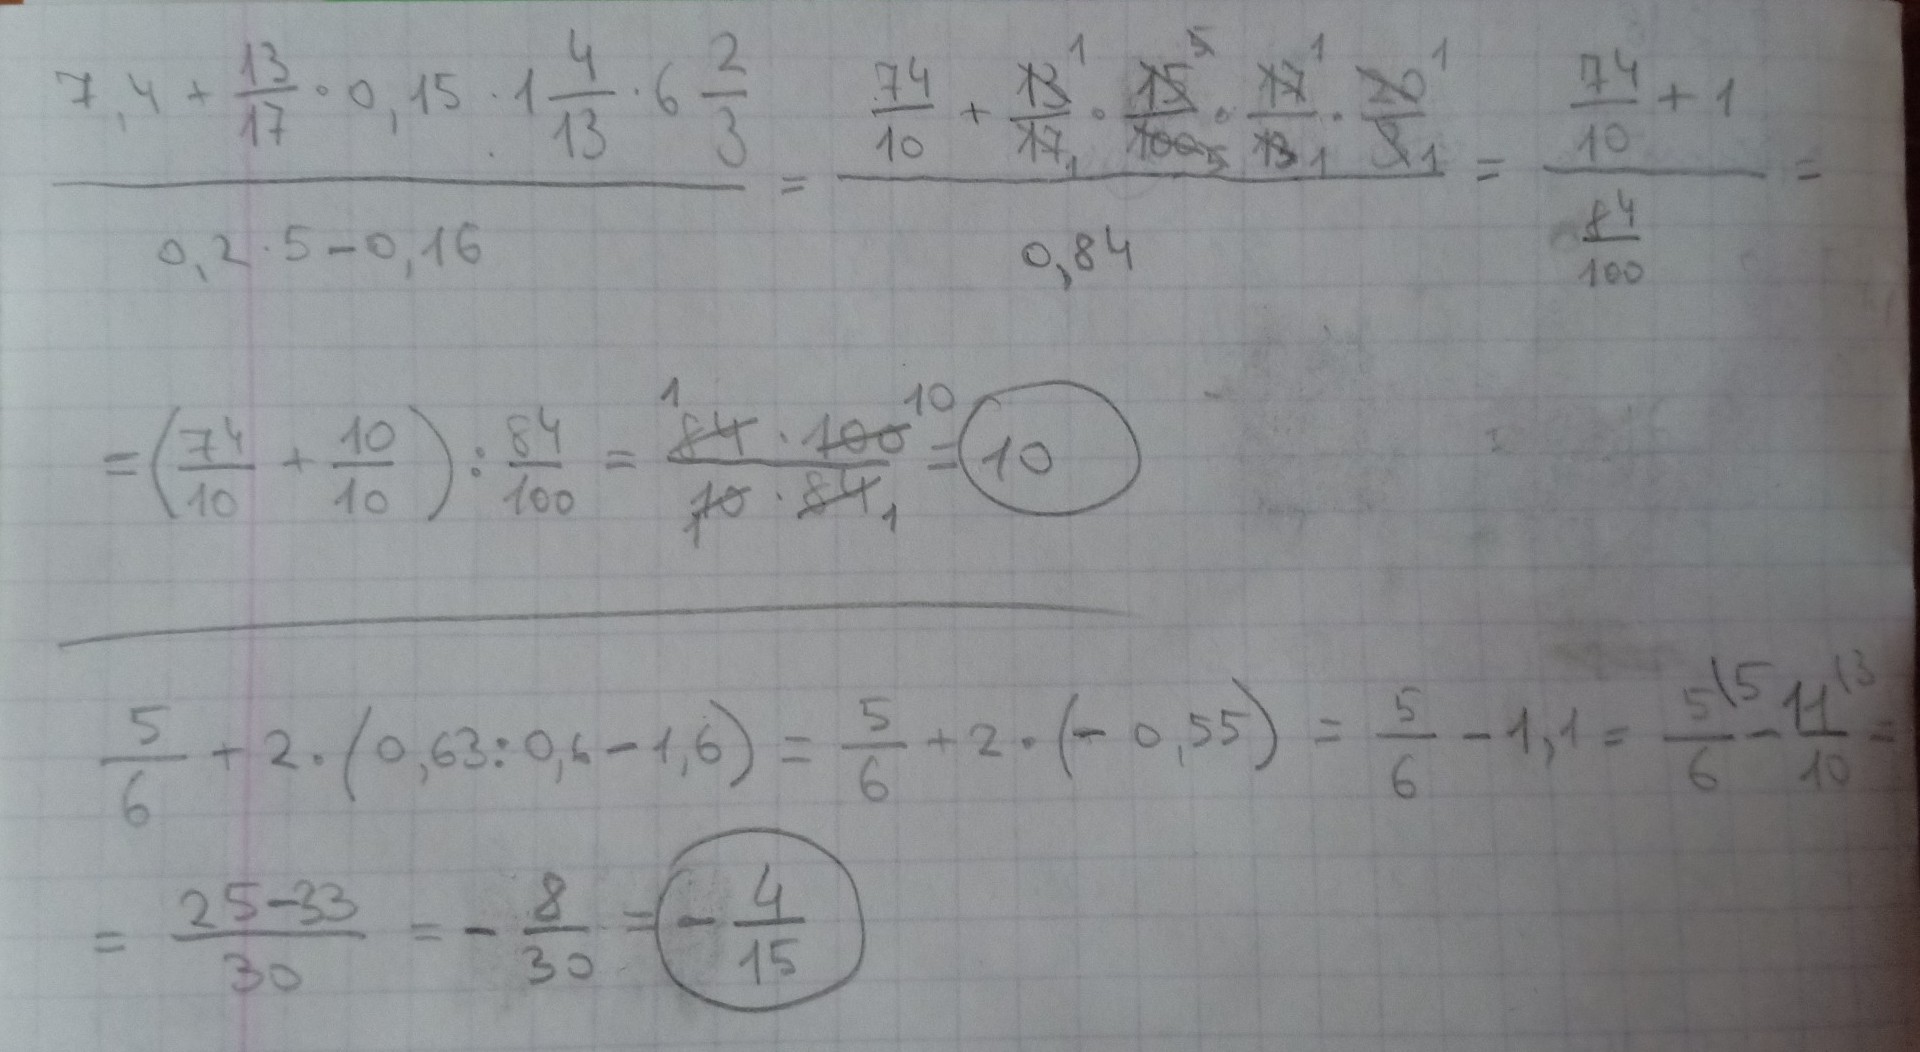 7,4 + 13/17 · 0,15 · 1 4/13 · 6 2/3 / 0,2 · 5 - 0,16 = 74/10 + 13/17 · 15/100 · 17/13 · 20/3 / 0,84 = 74/10 + 1 / 84/100 =
= (74/10 + 10/10) : 84/100 = 84 · 100 / 10 · 84 = 10
5/6 + 2 · (0,63 : 0,6 - 1,6) = 5/6 + 2 · (- 0,55) = 5/6 - 1,1 = 5/6 (5 - 11/10 (3 =
= 25-33/30 = - 8/30 = - 4/15